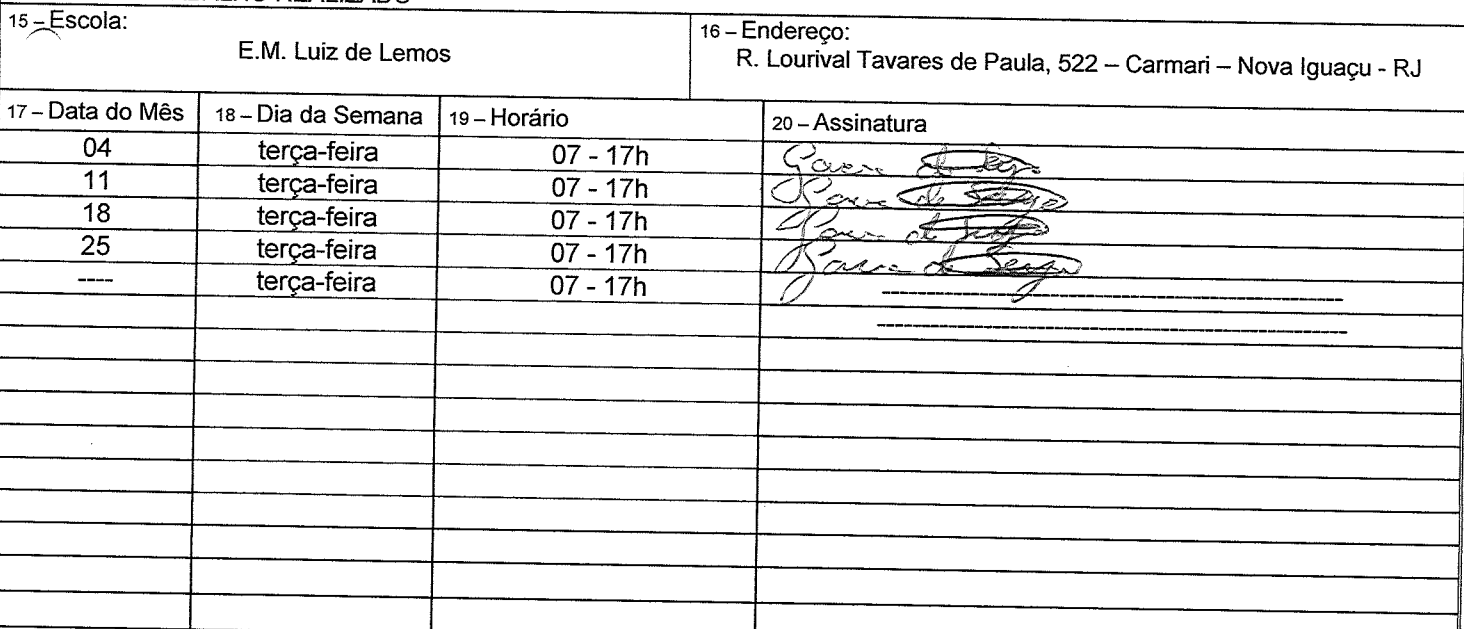 15 – Escola:
E.M. Luiz de Lemos
16 – Endereço:
R. Lourival Tavares de Paula, 522 – Carmari – Nova Iguaçu - RJ
17 – Data do Mês 18 – Dia da Semana 19 – Horário 20 – Assinatura
04 terça-feira 07 - 17h
11 terça-feira 07 - 17h
18 terça-feira 07 - 17h
25 terça-feira 07 - 17h
---- terça-feira 07 - 17h